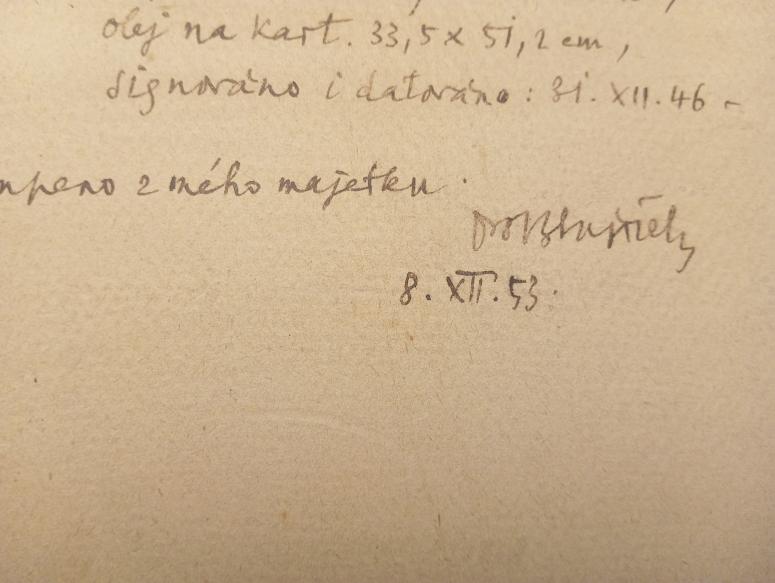 olej na kart. 33,5 x 51,2 cm,
signováno i datováno: 31. XII. 46 -
z mého majetku.
8. XII. 53.